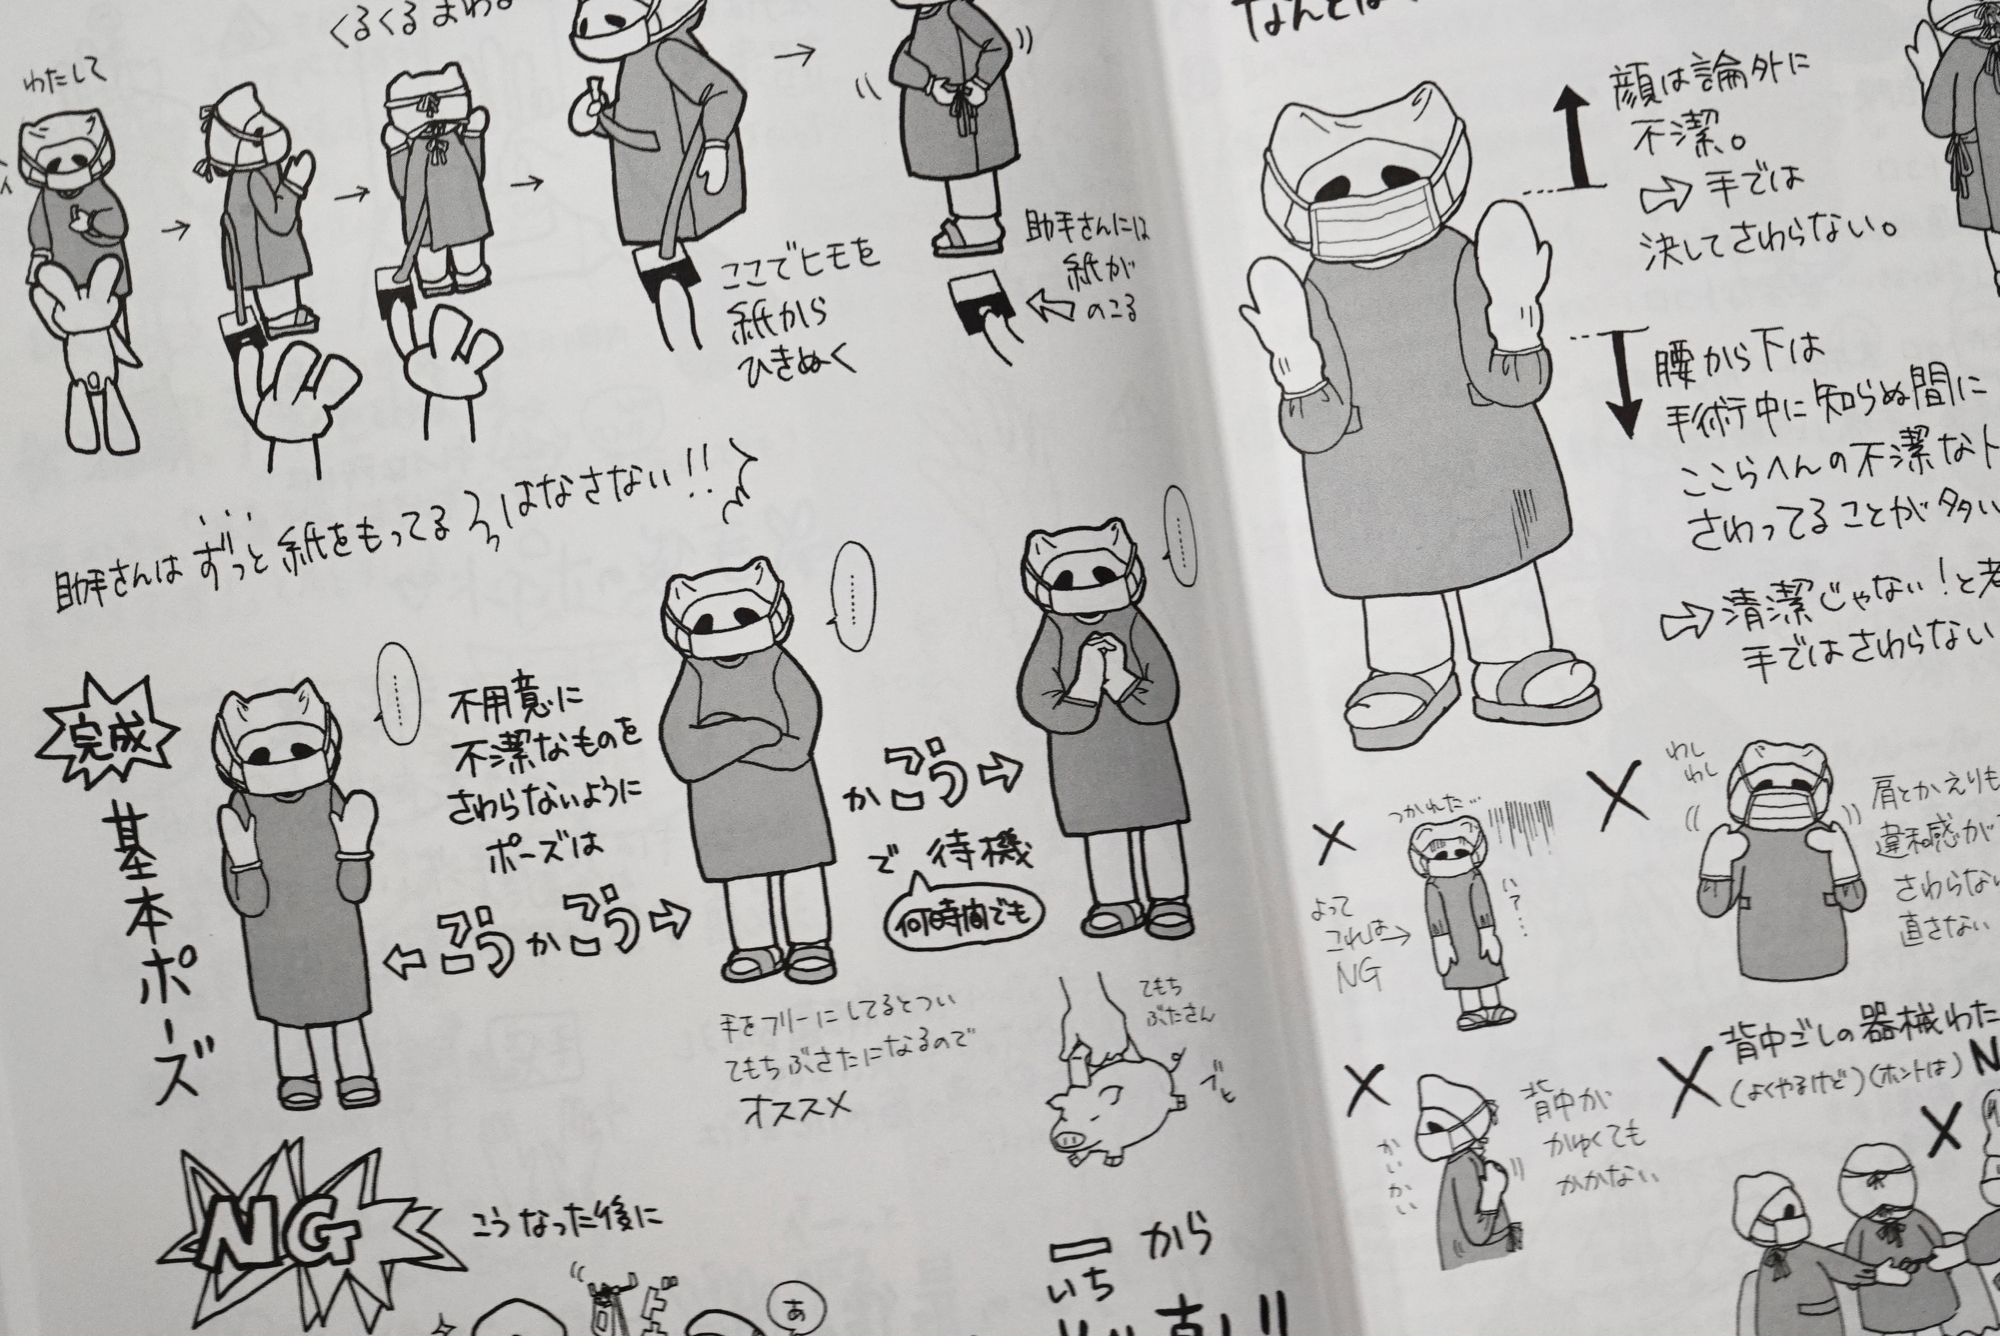 くるくるまわる
わたして
ここでヒモを
紙から
ひきぬく
助手さんには
紙が
のこる
助手さんはずっと紙をもってる
はなさない!!
完成
基本ポーズ
不用意に
不潔なものを
さわらないように
ポーズは
こう
か
こう
か
こう
で待機
何時間でも
手をフリーにしてるとつい
てもちぶさたになるので
オススメ
てもち
ぶたさん
NG
こうなった後に
あ
一から
いち
顔は論外に
不潔。
⇨手では
決してさわらない。
腰から下は
手術中に知らぬ間に
ここらへんの不潔な
さわってることが多い
⇨清潔じゃない!と
手ではさわらない
つかれた…
よって
これは→
NG
わし
わし
肩とかえりも
違和感が
さわらない
直さない
背中が
かゆくても
かかない
かいかい
背中ごしの器械わた
(よくやるけど)(ホントは)